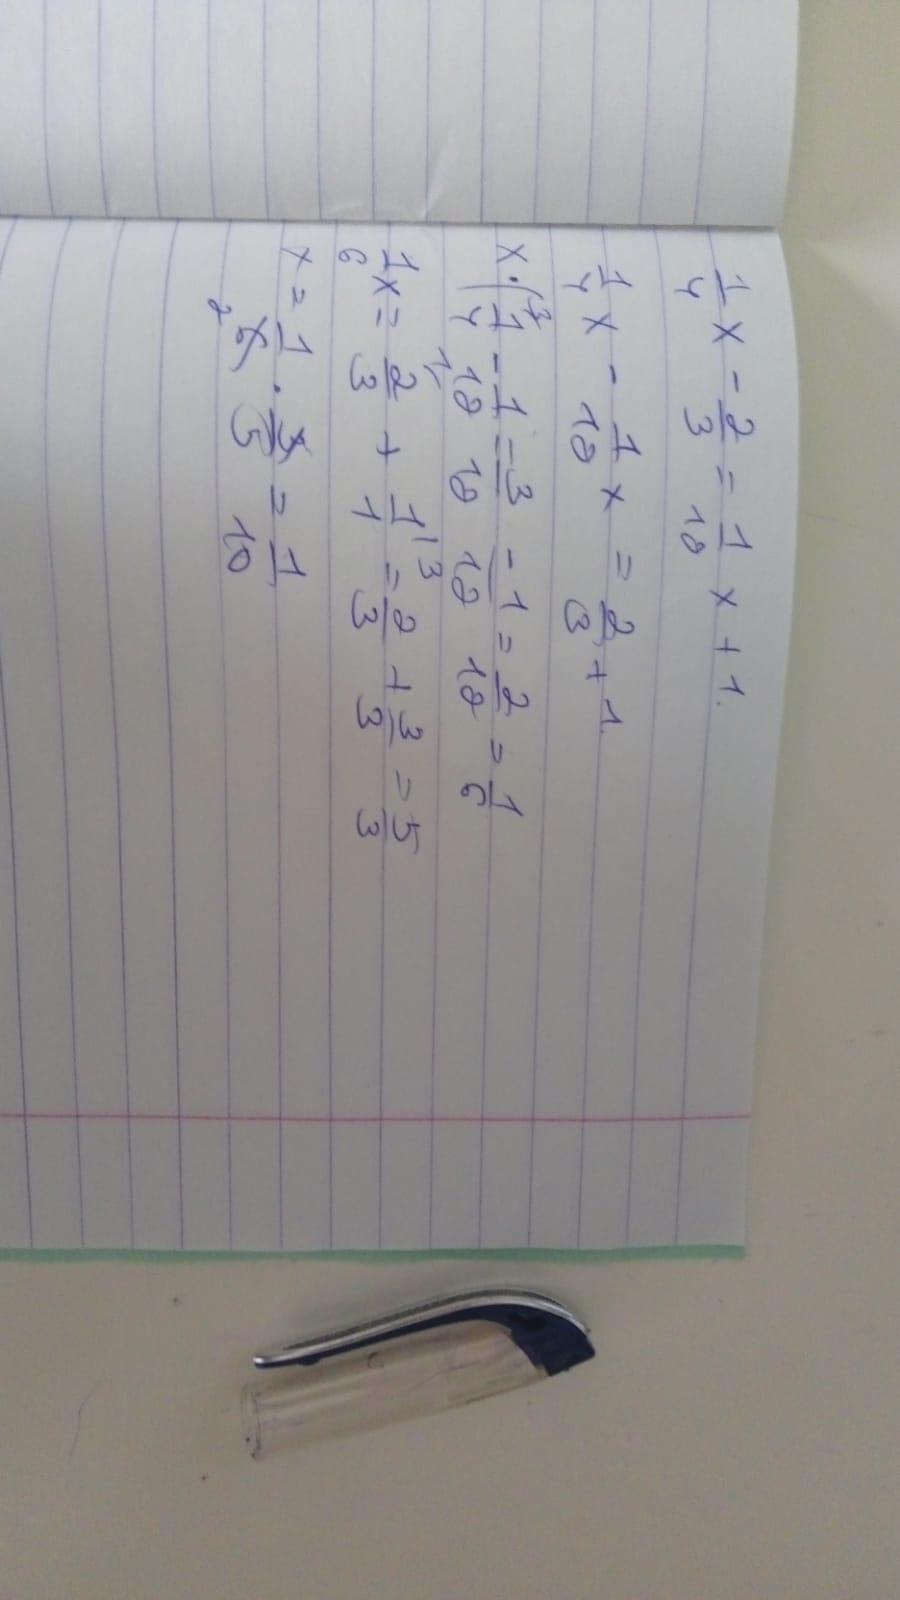 1/4 x - 2/3 = 1/12 x + 1.
1/4 x - 1/12 x = 2/3 + 1.
x · (3 1/4 - 1/12 = 3/12 - 1/12 = 2/12 = 1/6
1/6 x = 2/3 + 1/1 |3 = 2/3 + 3/3 = 5/3
x = 1/6 · 3/5 = 1/10
2